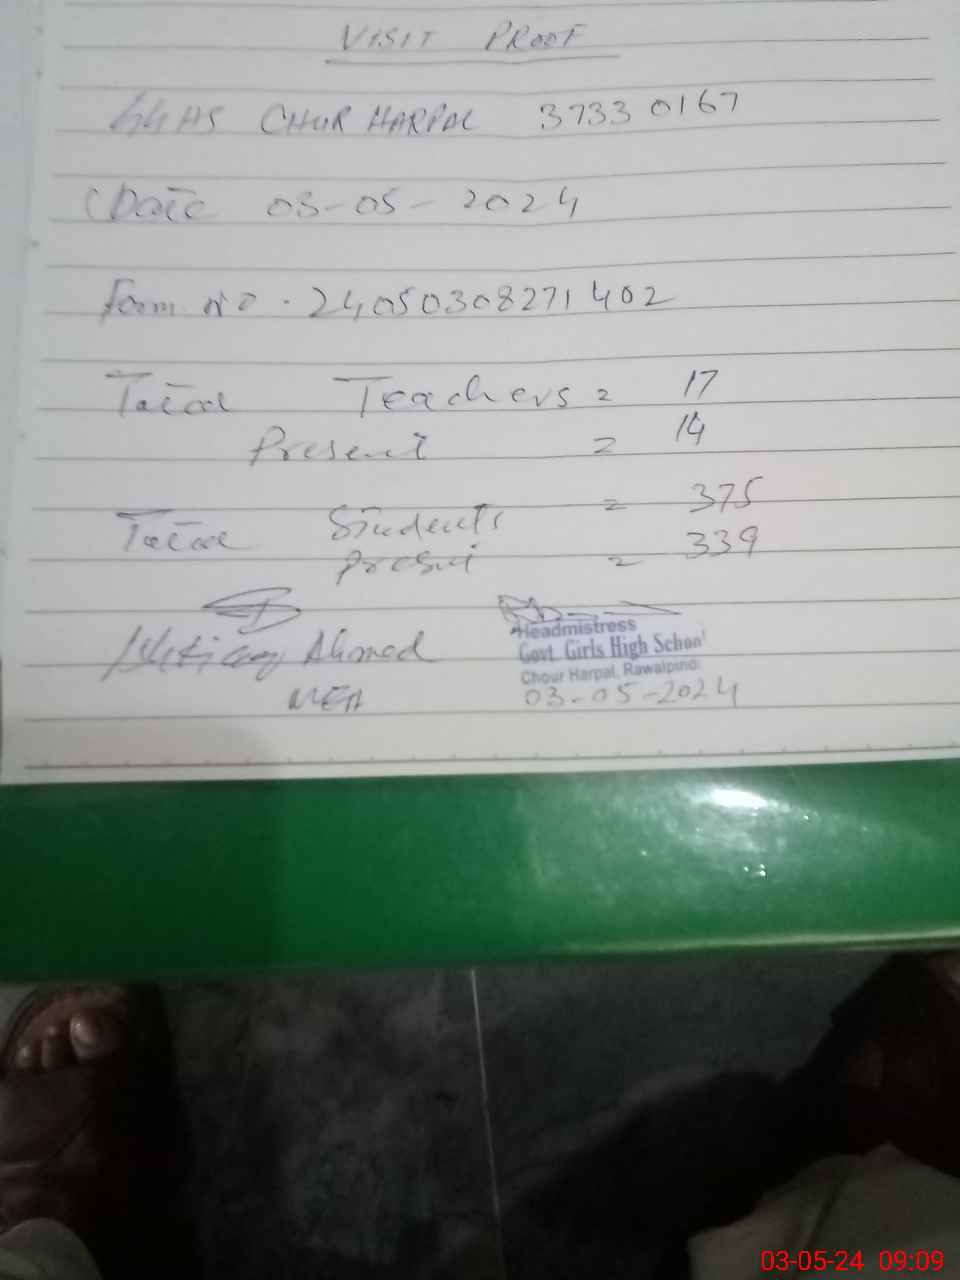 VISIT PROOF
GGHS CHUR HARPAL 37330167
Date 03-05-2024
Form NO. 24050308271402
Total Teachers = 17
Present = 14
Total Students = 375
Present = 339
Ahmed
MEA
Headmistress
Govt. Girls High School
Chour Harpal, Rawalpindi
03-05-2024
03-05-24 09:09